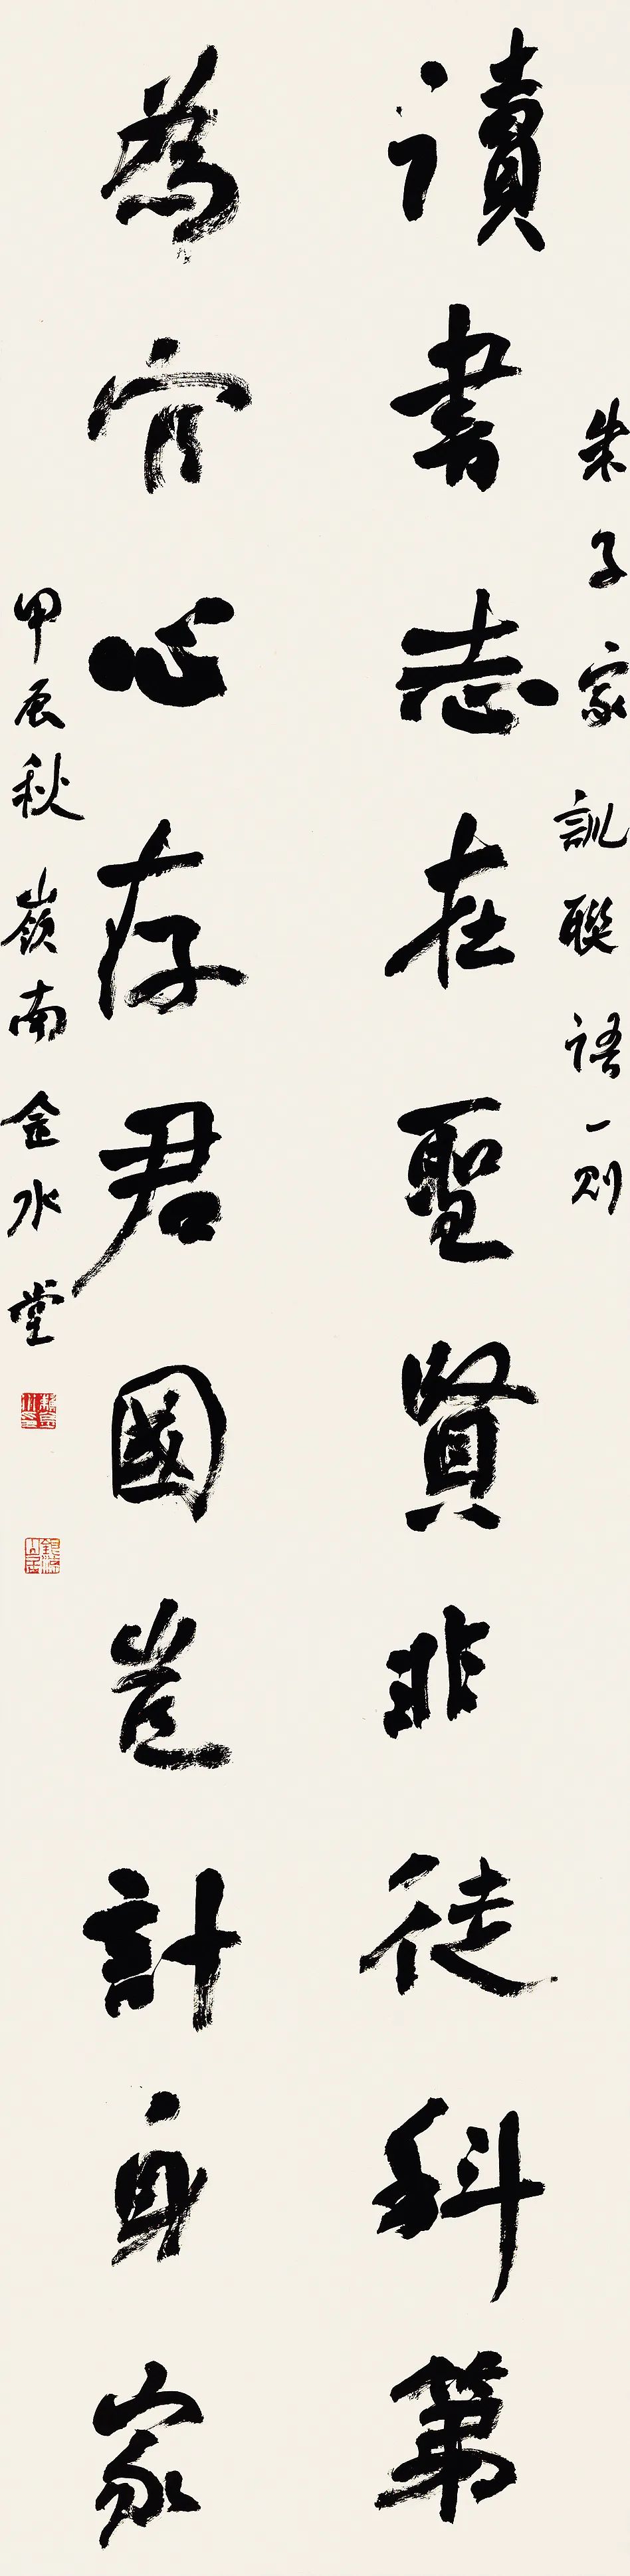 朱子家訓聯語一則
讀書志在聖賢非徒科第
為官心存君國豈計身家
甲辰秋嶺南金水堂